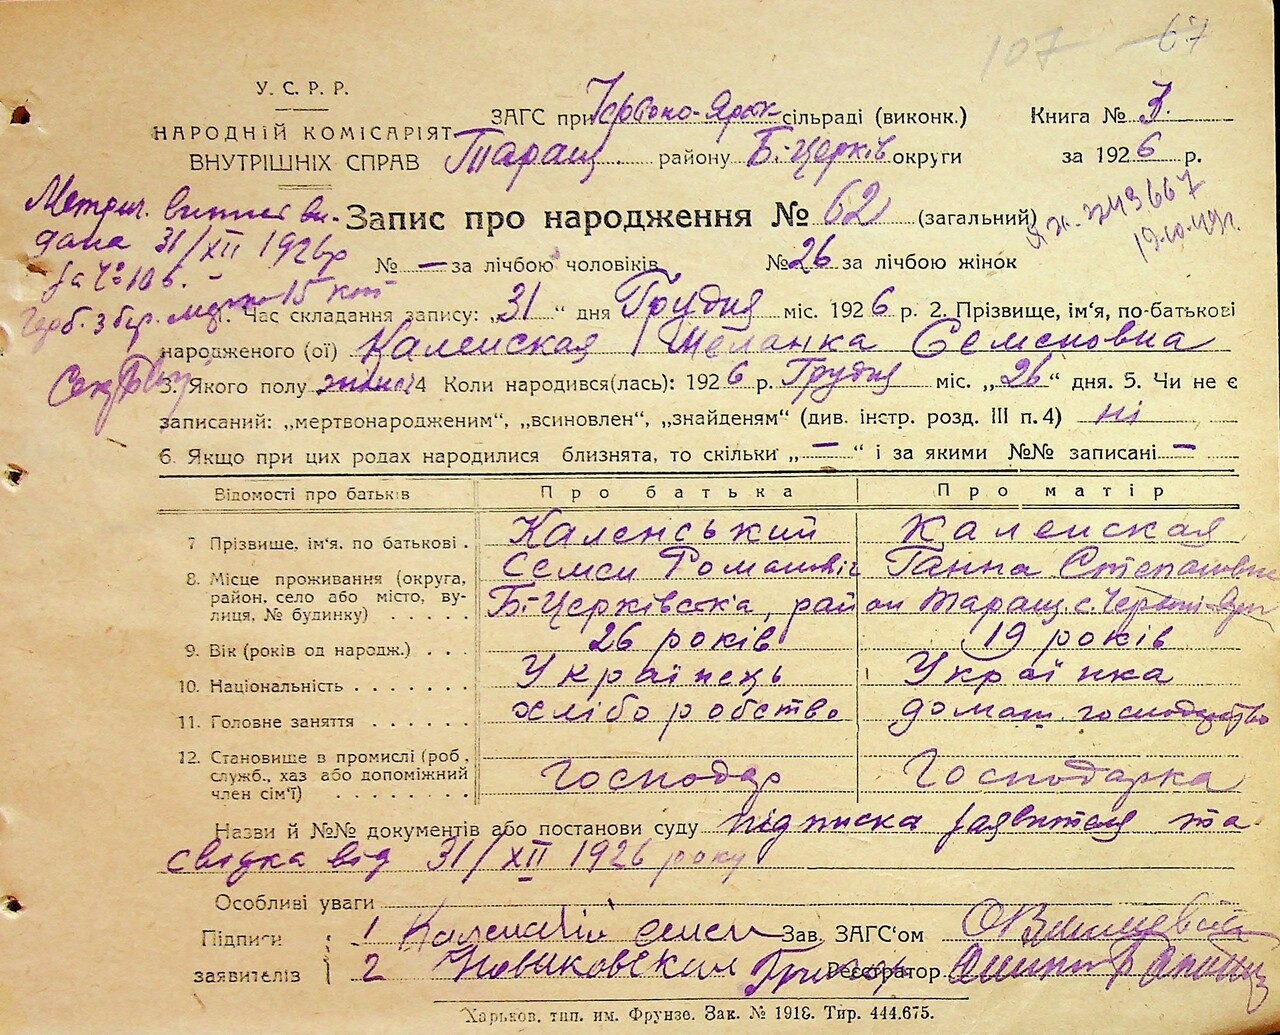 107 67
У. С. Р. Р.
НАРОДНІЙ КОМІСАРІЯТ
ВНУТРІШНІХ СПРАВ
ЗАГС при Червоно-Ярск сільраді (виконк.)
Таращ. району Б-Церків округи
Книга № 3.
за 1926 р.
Метрич. виписі ви-
дана 31/XII 1926р
за № 10 в.
15 коп
Запис про народження № 62 (загальний)
№ — за лічбою чоловіків № 26 за лічбою жінок
743667
19-10-49г.
1. Час складання запису: „31“ дня Грудня міс. 1926 р. 2. Прізвище, ім'я, по-батькові
народженого (ої) Каленская Меланка Семеновна
3. Якого полу жіночі 4 Коли народився(лась): 1926 р. Грудня міс. „26“ дня. 5. Чи не є
записаний: „мертвонародженим“, „всиновлен“, „знайденям“ (див. інстр. розд. III п. 4) ні
6. Якщо при цих родах народилися близнята, то скільки „—“ і за якими №№ записані —
Відомості про батьків Про батька Про матір
7 Прізвище, ім'я, по батькові . Каленський Каленская
Семен Романовіч Ганна Степановна
8. Місце проживання (округа,
район, село або місто, ву-
лиця, № будинку) . . . . . Б-Церківська, район Таращ. с. Червоні-Яри
9. Вік (років од народж.) . . . 26 років 19 років
10. Національність . . . . . . . Українець Українка
11. Головне заняття . . . . . . хлібо робство домаш. господарство
12. Становище в промислі (роб.,
служб., хаз або допоміжний
член сім'ї) . . . . . . . Господар Господарка
Назви й №№ документів або постанови суду підписка заявителя та
свідка від 31/XII 1926 року
Особливі уваги
Підписи
заявителів
1 Каленский Семен Зав. ЗАГС'ом
2 Новиковский Григор Реєстратор
Харьков, тип. им. Фрунзе. Зак. № 1918. Тир. 444.675.